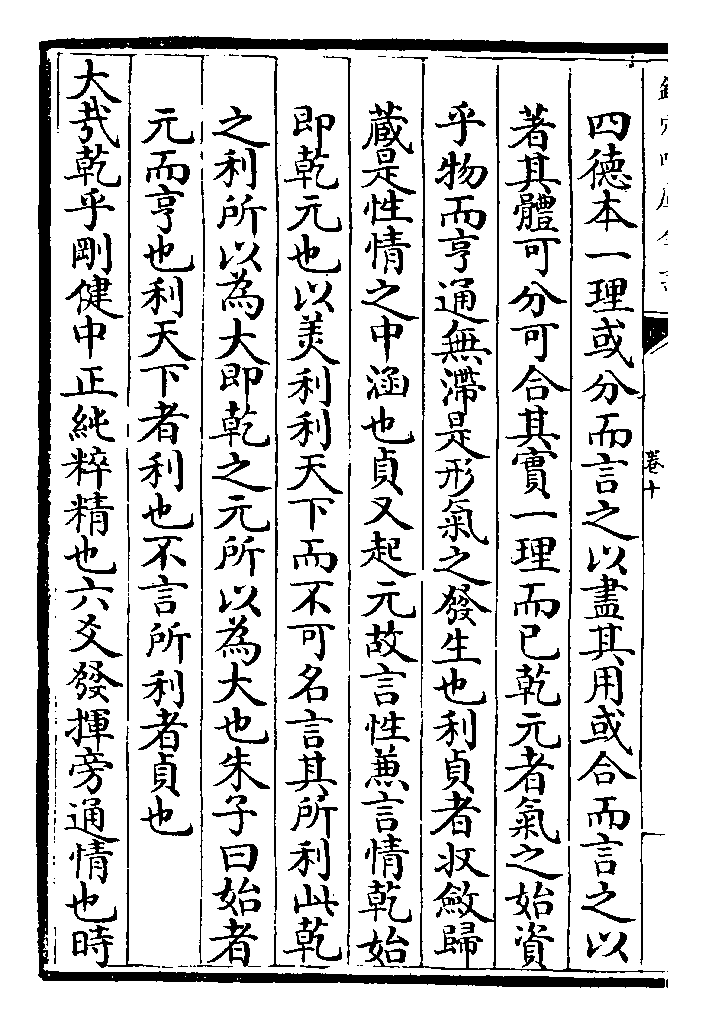 四德本一理或分而言之以盡其用或合而言之以
著其體可分可合其實一理而已乾元者氣之始資
乎物而亨通無滯是形氣之發生也利貞者収斂歸
蔵是性情之中涵也貞又起元故言性兼言情乾始
即乾元也以美利利天下而不可名言其所利此乾
之利所以為大即乾之元所以為大也朱子曰始者
元而亨也利天下者利也不言所利者貞也
大哉乾乎剛健中正純粹精也六爻發揮旁通情也時
卷十